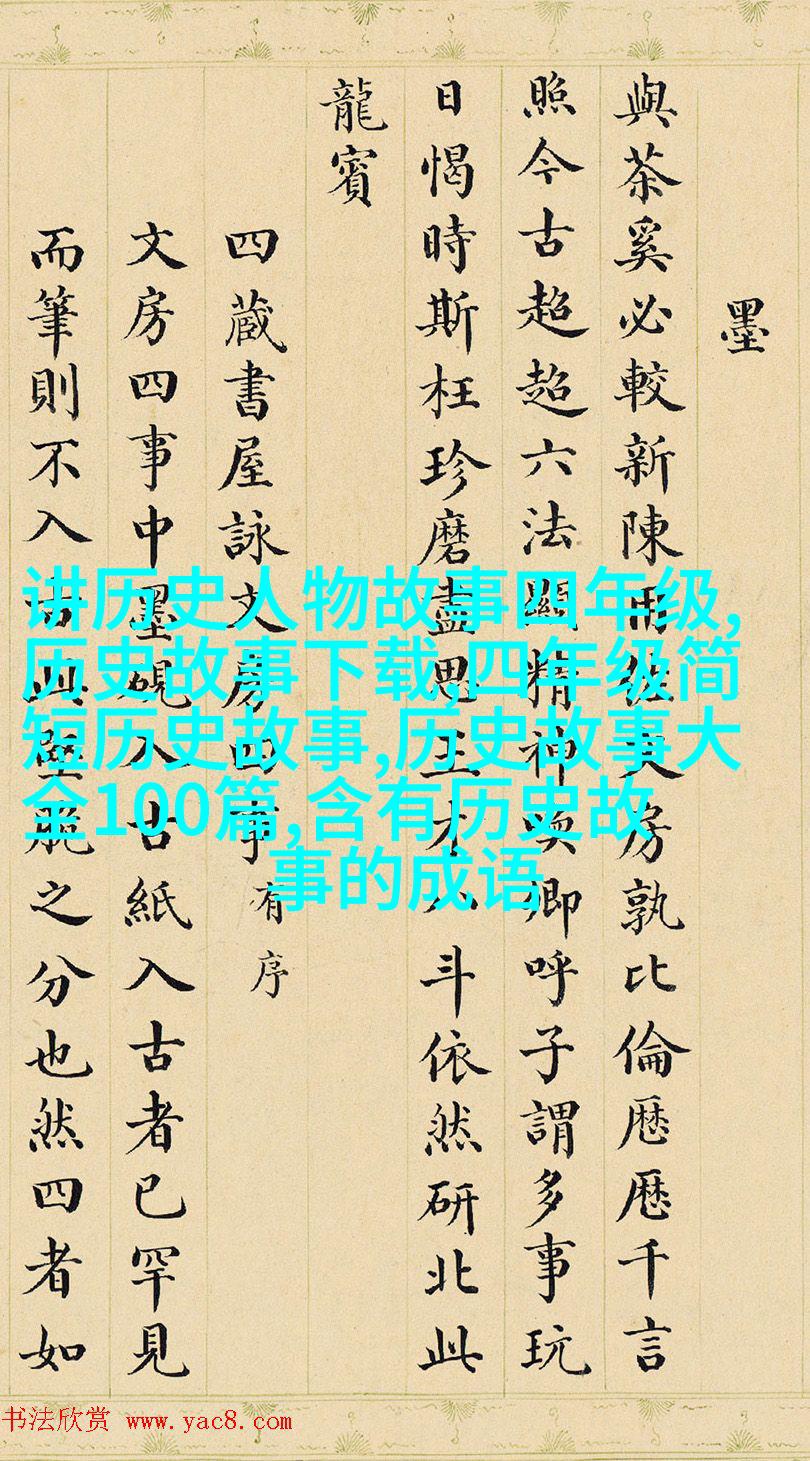 墨
與茶奚必較新陳用佐文房孰比倫厯厯千言
照今古超超六法關精神喚卿呼子謂多事玩
日愒時斯枉珍磨盡思王才八斗依然研北此
龍賓
四蔵書屋詠文房四事有序
文房四事中墨硯入古紙入古者已罕見
而筆則不入古此堅脆之分也然四者如
讲历史人物故事四年级,
历史故事下载,四年级简
短历史故事,历史故事大
全100篇,含有历史故
事的成语
书法欣赏 www.yac8.com